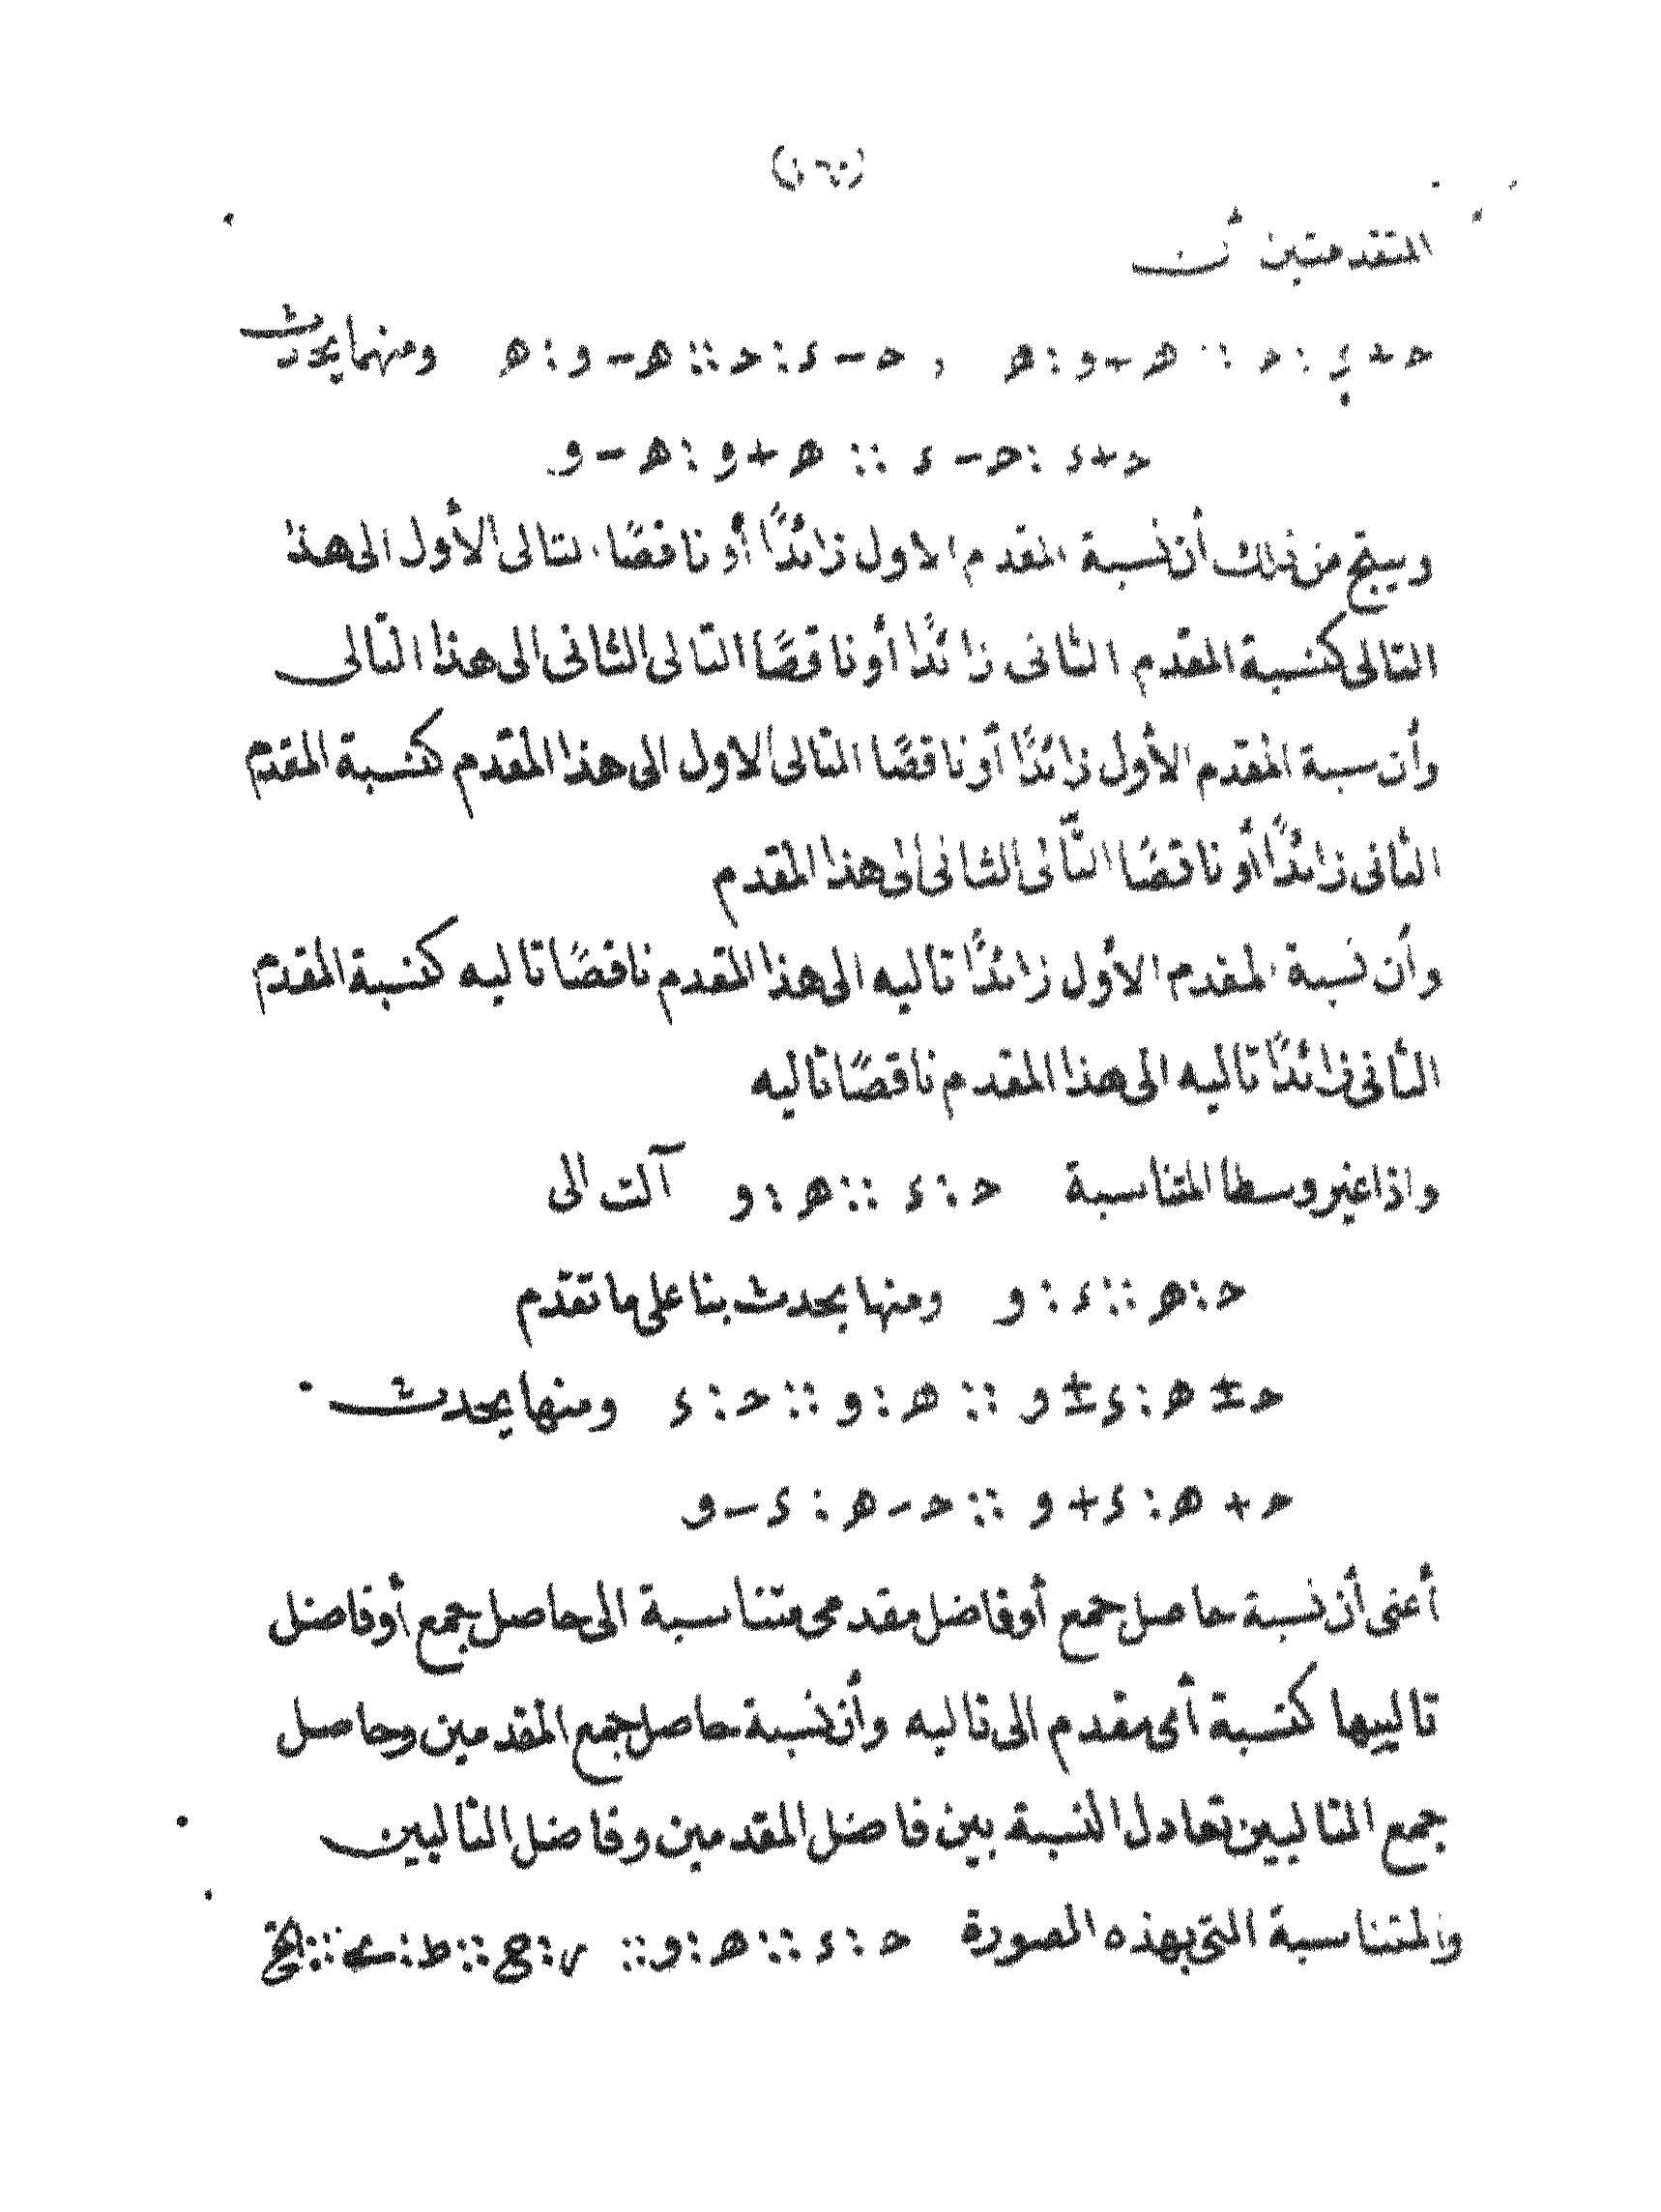 المتقدمتين أن
حـ + د : حـ :: هـ + و : هـ , حـ − د : حـ :: هـ − و : هـ ومنهما يحدث
حـ + د : حـ − د :: هـ + و : هـ − و
وينتج من ذلك أن نسبة المقدم الاول زائدًا أو ناقصًا التالى الأول الى هذا
التالى كنسبة المقدم الثانى زائدًا أو ناقصًا التالى الثانى الى هذا التالى
وأن نسبة المقدم الأول زائدًا أو ناقصًا التالى الاول الى هذا المقدم كنسبة المقدم
الثانى زائدًا أو ناقصًا التّالى الثانى الى هذا المقدم
وأن نسبة المقدم الأول زائدًا تاليه الى هذا المقدم ناقصًا تاليه كنسبة المقدم
الثانى زائدًا تاليه الى هذا المقدم ناقصًا تاليه
واذا غير وسطا المتناسبة حـ : د :: هـ : و آلت الى
حـ : هـ :: د : و ومنها يحدث بنا على ما تقدم
حـ ± هـ : د ± و :: هـ : و :: حـ : د ومنها يحدث
حـ + هـ : د + و :: حـ − هـ : د − و
أعنى أن نسبة حاصل جمع أو فاضل مقدمى متناسبة الى حاصل جمع أو فاضل
تالييها كنسبة أى مقدم الى تاليه وأن نسبة حاصل جمع المقدمين وحاصل
جمع التاليين تعادل النسبة بين فاضل المقدمين وفاضل التاليين
والمتناسبة التى بهذه الصورة حـ : د :: هـ : و :: ر : ح :: ط : ى :: الخ